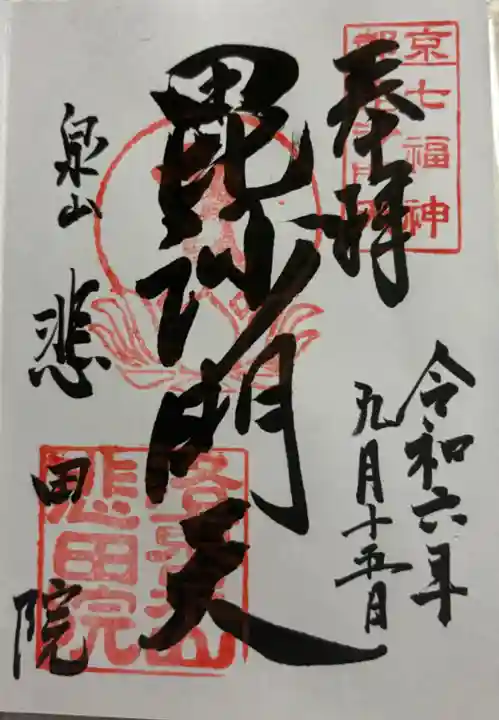 京七福神
奉拝
令和六年
九月十五日
毘沙門天
泉山
悲田院
悲田院